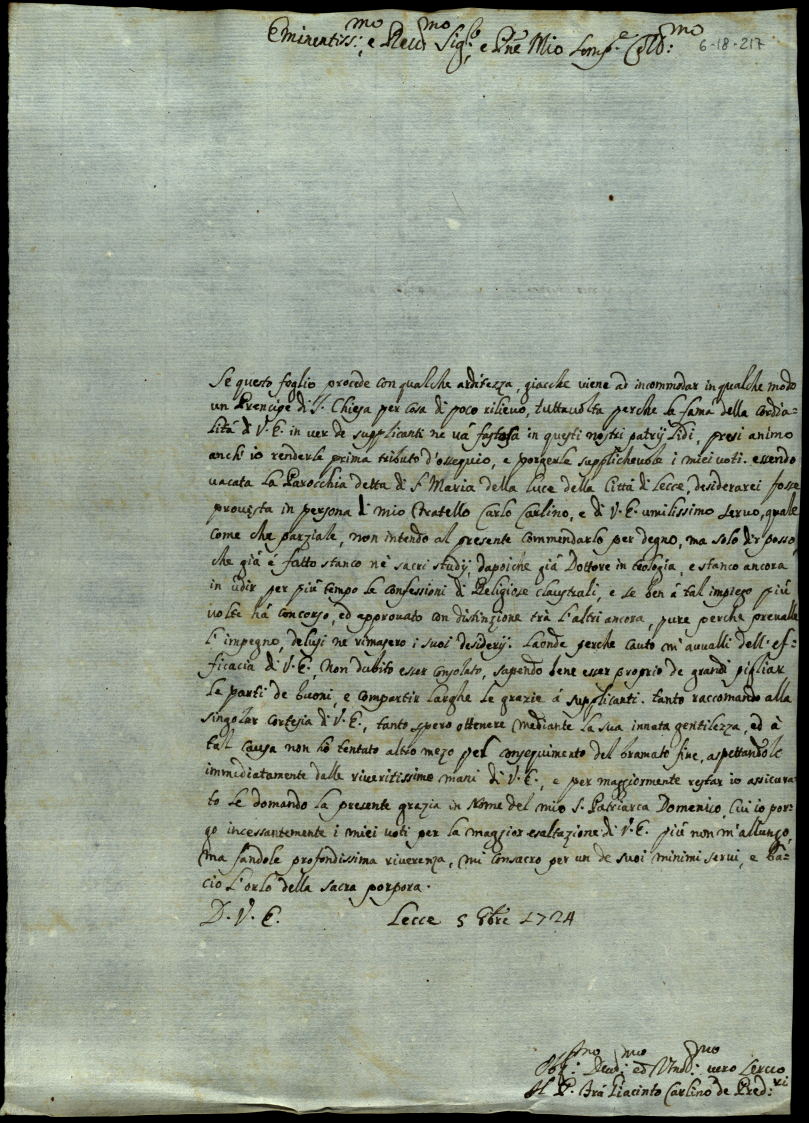 Eminentiss:mo, e Re mo Sig:r, e Pne Mio Semp.e Col:mo 6-18-217
Se questo foglio procede con qualche arditezza, giacche viene ad incommodar in qualche modo
un Prencipe di S. Chiesa per cosa di poco rilievo, tuttavolta perche la fama della cordia=
lità di V. E. in ver de supplicanti ne và fastosa in questi nostri patrij Lidi, presi animo
anch' io renderle prima tributo d'ossequio, e porgerle supplichevole i miei voti. essendo
vacata la Parocchia detta di S. Maria della luce della Città di Lecce, desiderarei fosse
provista in persona di mio Fratello Carlo Carlino, e di V. E. umilissimo servo, quale
come che parziale, non intendo al presente commendarlo per degno, ma solo dir posso
che già é fatto stanco né sacri studij, dapoiche già Dottore in teologia, e stanco ancora
in udir per più tempo le confessioni di Religiose claustrali, e se ben á tal impiego più
volte há concorso, ed approvato con distinzione trà l'altri ancora, pure perche prevalle
l' impegno, delusi ne rimasero i suoi desiderij. Laonde perche cauto m' avvalli dell' ef=
ficacia di V. E., Non dubito esser consolato, sapendo bene esser proprio de grandi pigliar
le parti de buoni, e compartir larghe le grazie á supplicanti. tanto raccomando alla
singolar cortesia di V. E., tanto spero ottenere mediante la sua innata gentilezza, ed à
tal causa non hò tentato altro mezo pel conseguimento del bramato fine, aspettandole
immediatamente dalle riveritissime mani di V. E., e per maggiormente restar io assicura=
to le domando la presente grazia in Nome del mio S. Patriarca Domenico, Cui io por=
go incessantemente i miei voti per la maggior esaltazione di V. E. più non m' allungo,
ma fandole profondissima riverenza, mi consacro per un de suoi minimi servi, e ba=
cio l'orlo della sacra porpora.
D. V. E. Lecce 5 bre 1724
mo mo mo
Obl: Dev: ed vero servo
Il P. Frà Giacinto Carlino de Pred:ri